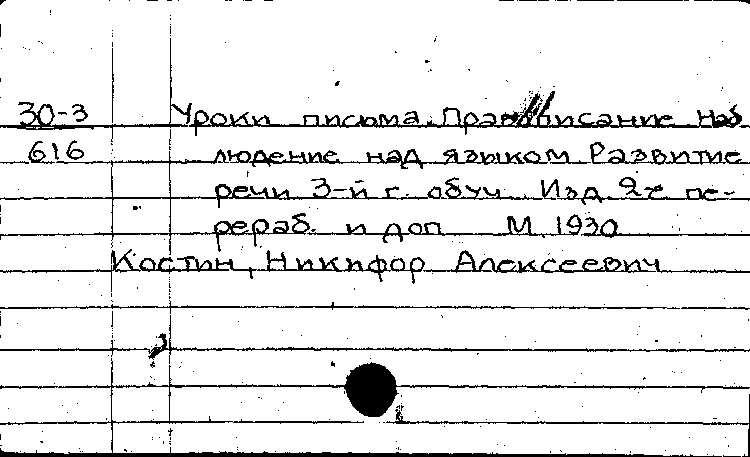 30-3 Уроки письма. Правописание Наб
616 людение над языком Развитие
речи 3-й г. обуч. Изд. 2-е пе-
рераб. и доп М. 1930
Костин, Никифор Алексеевич